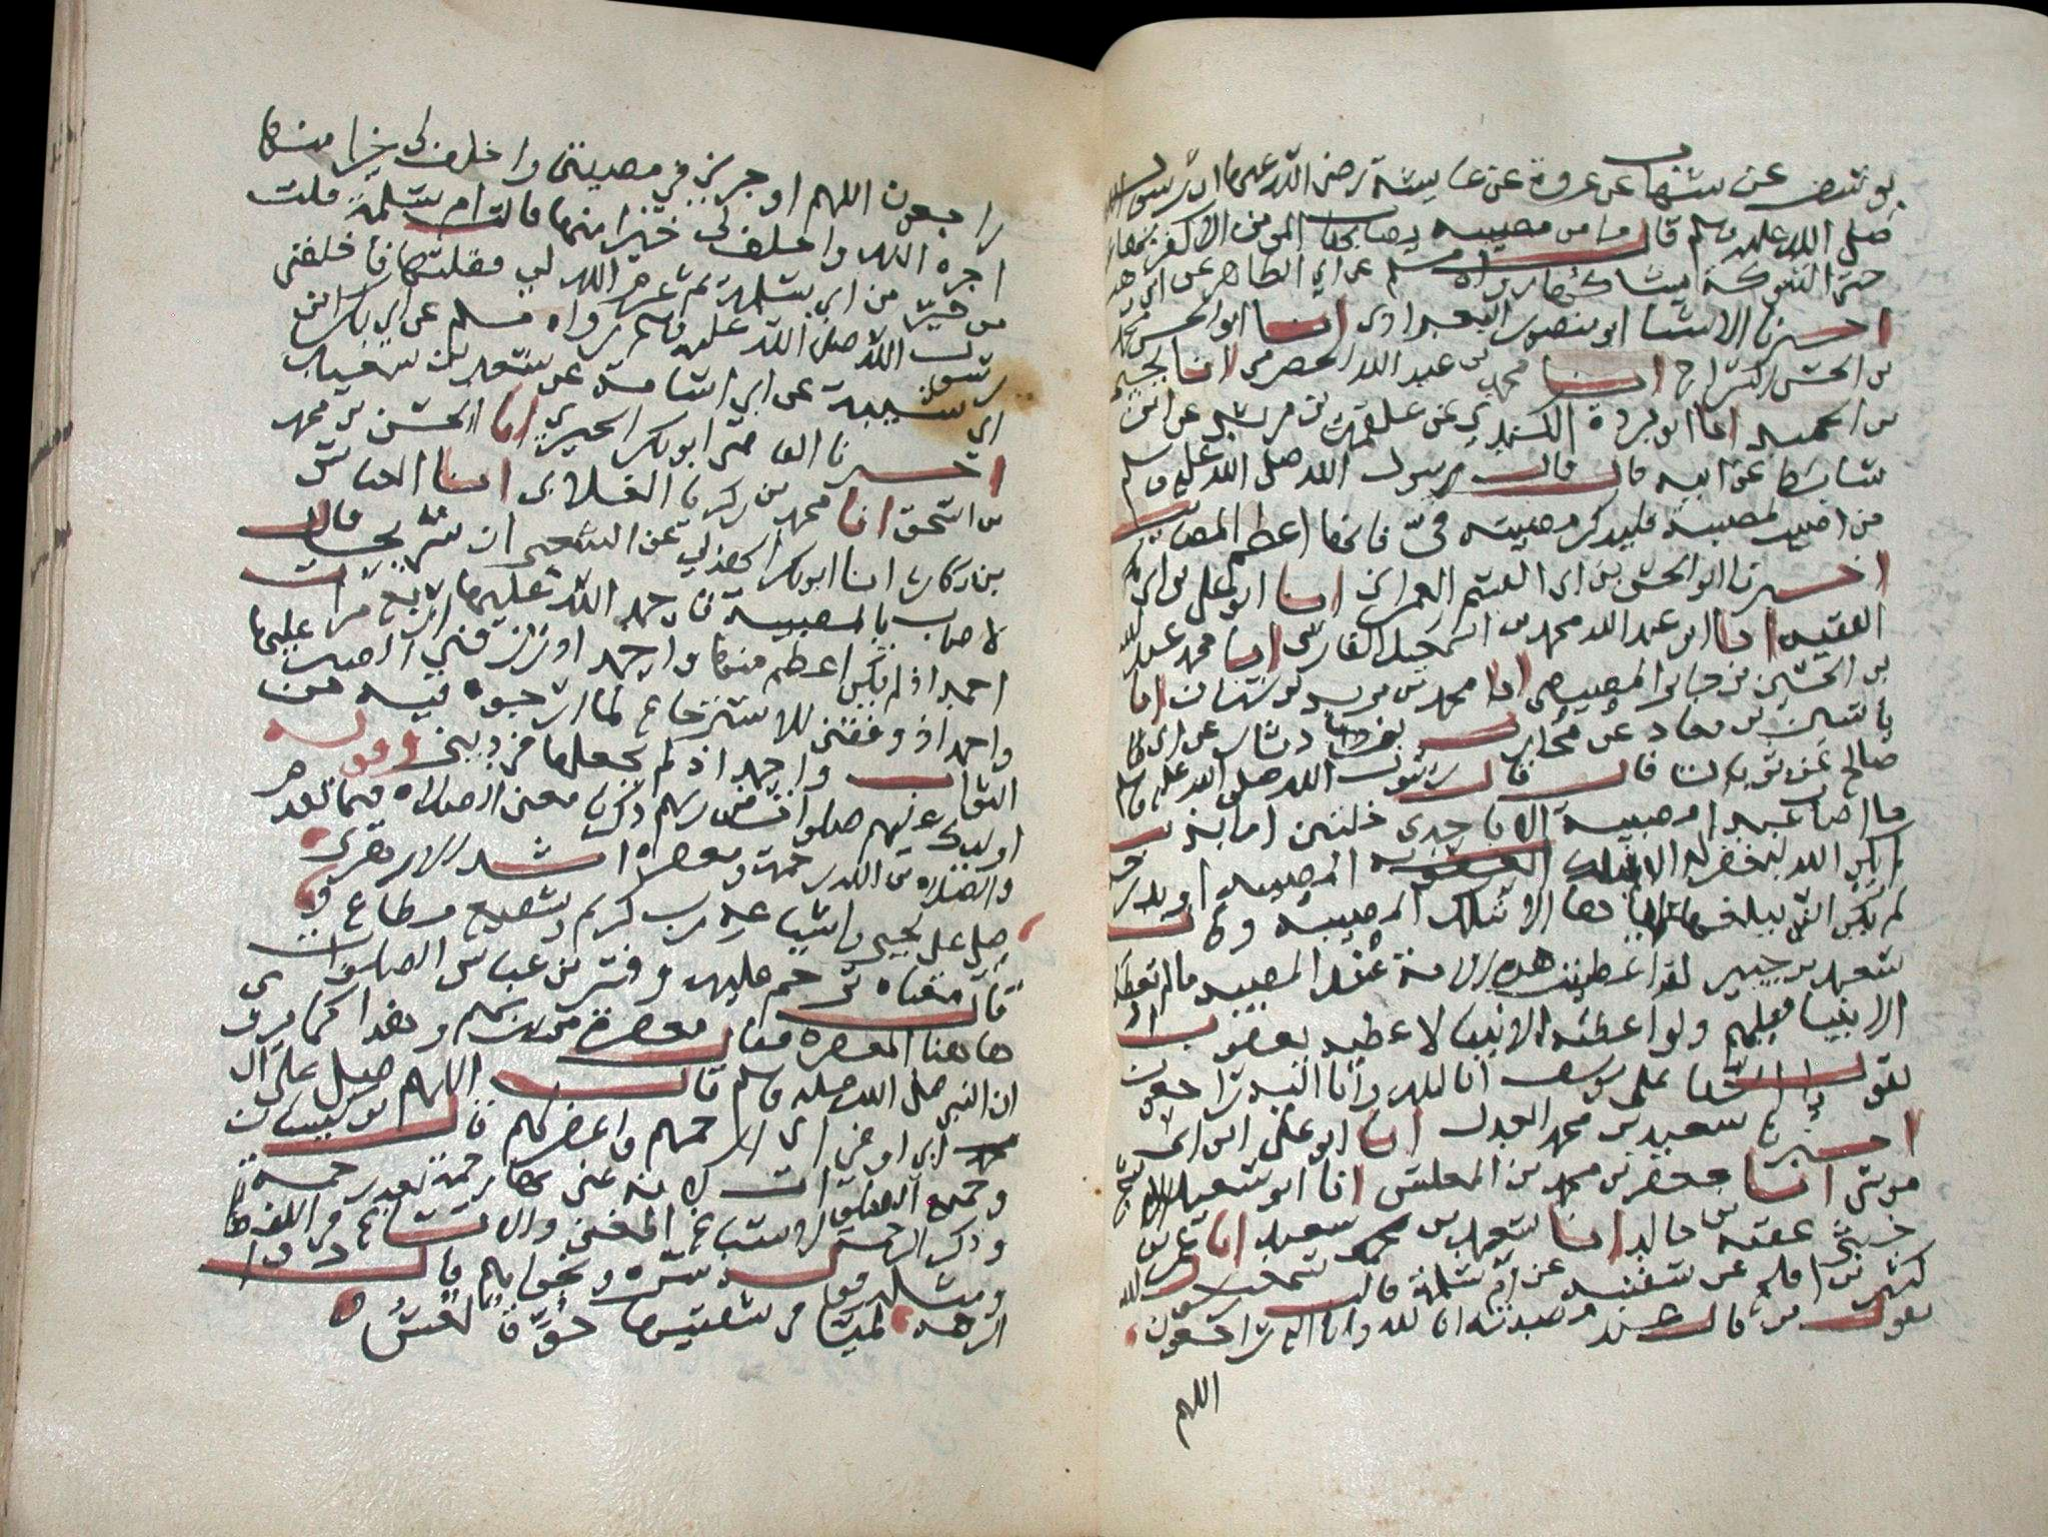 يونس عن شهاب عن عروة عن عايشة رضى الله عنها ان رسول الله
صلى الله عليه وسلم قال ما من مصيبة يصاب بها المومن الا كفر بها
حتى الشوكة يشاكها رواه مسلم عن ابي الطاهر عن ابن وهب
اخبرنا الاستاد ابو منصور البغدادى انا ابو الحسن محمد
بن الحسن السراج انا محمد بن عبد الله الحضرمى انا يحيى
بن الحميد انا ابو بردة الكندي عن علقمة بن مرثد عن ابن
سابط عن ابيه قال قال رسول الله صلى الله عليه وسلم
من اصيب بمصيبة فليذكر مصيبته فيّ فانها اعظم المصايب
اخبرنا ابو الحسن بن ابى القسم العمرانى انا ابو على بن ابى بكر
الفقيه انا ابو عبد الله محمد بن اسمعيل الفارسى انا محمد عبد الله
بن الحسين بن جابر المصيصى انا محمد بن يزيد بن سنان انا
ياسين بن معاد عن محارب بن دثار عن ابى
صالح عن ثوبان قال قال رسول الله صلى الله عليه وسلم
ما اصاب عبد امصيبة الا باحدى خلتين اما بذنب
لم يكن الله ليغفر له الا بتلك المصيبه او بدرجه
لم يكن الله ليبلغه اياها الا بتلك المصيبة وقال
سعيد بن جبير لقد اعطيت هذه الامة عند المصيبه ما لم تعطه
الانبيا قبلهم ولو اعطته الانبيا لاعطيه يعقوب اذ
يقول يا اسفا على يوسف انا لله وانا اليه راجعون
اخبرنا سعيد بن محمد العدل انا ابو على ابن ابى
موسى انا جعفر بن محمد بن المغلس انا ابو سعيد الاشج
حدثنى عقبه بن خالد انا سعيد بن سعيد انا عمر بن
كثير بن افلح عن سفينه عن ام سلمة قالت سمعت رسول الله
يقول من قال عند مصيبته انا لله وانا اليه راجعون
اللهم
راجعون اللهم اوجرني فى مصيبتى واخلف لى خيرا منها
اجره الله واخلف له خيرا منها قالت ام سلمة قلت
من خير من ابى سلمة ثم عزم الله لي فقلتها فاخلفنى
رسول الله صلى الله عليه وسلم رواه مسلم عن ابي بكر ابن
ابي شيبة عن ابي اسامة عن سعد بن سعيد
اخبرنا القاضى ابو بكر الحيري انا الحسن بن محمد
بن اسحق انا محمد بن زكريا الغلابى انا العباس
بن بكار انا ابو بكر الهذلي عن الشعبى ان شريحا قال
لاصاب بالمصيبة فاحمد الله عليها اربع مرات
احمد اذ لم يكن اعظم منها واحمد اذ رزقنى الصبر عليها
واحمد اذ وفقنى للاسترجاع لما ارجوه فيه من
الثواب واحمد اذ لم يجعلها فى دينى وقوله
اولئك عليهم صلوات من ربهم ذكرنا معنى الصلاة فيما تقدم
والصلاه من الله رحمة ومغفرة انشد الازهرى
صل على يحيى واشياعه رب كريم وشفيع مطاع
قال معناه ترحم عليه وفسر بن عباس الصلوات
هاهنا المغفرة فقال مغفرة من ربهم وهذا كما يروى
ان النبى صلى الله عليه وسلم قال اللهم صل على ال
ابي اوفى اى ارحمهم واغفر لهم قال بن كيسان
وجمع الصلوات لانه عنى بها رحمة بعد رحمة
وذكر الرحمة لاشباع المعنى والاتساع فى اللفظ
ومثله قوله سره ونجواهم وقال ذو
الرمه لميا فى شفتيها حوّة لعسٌ